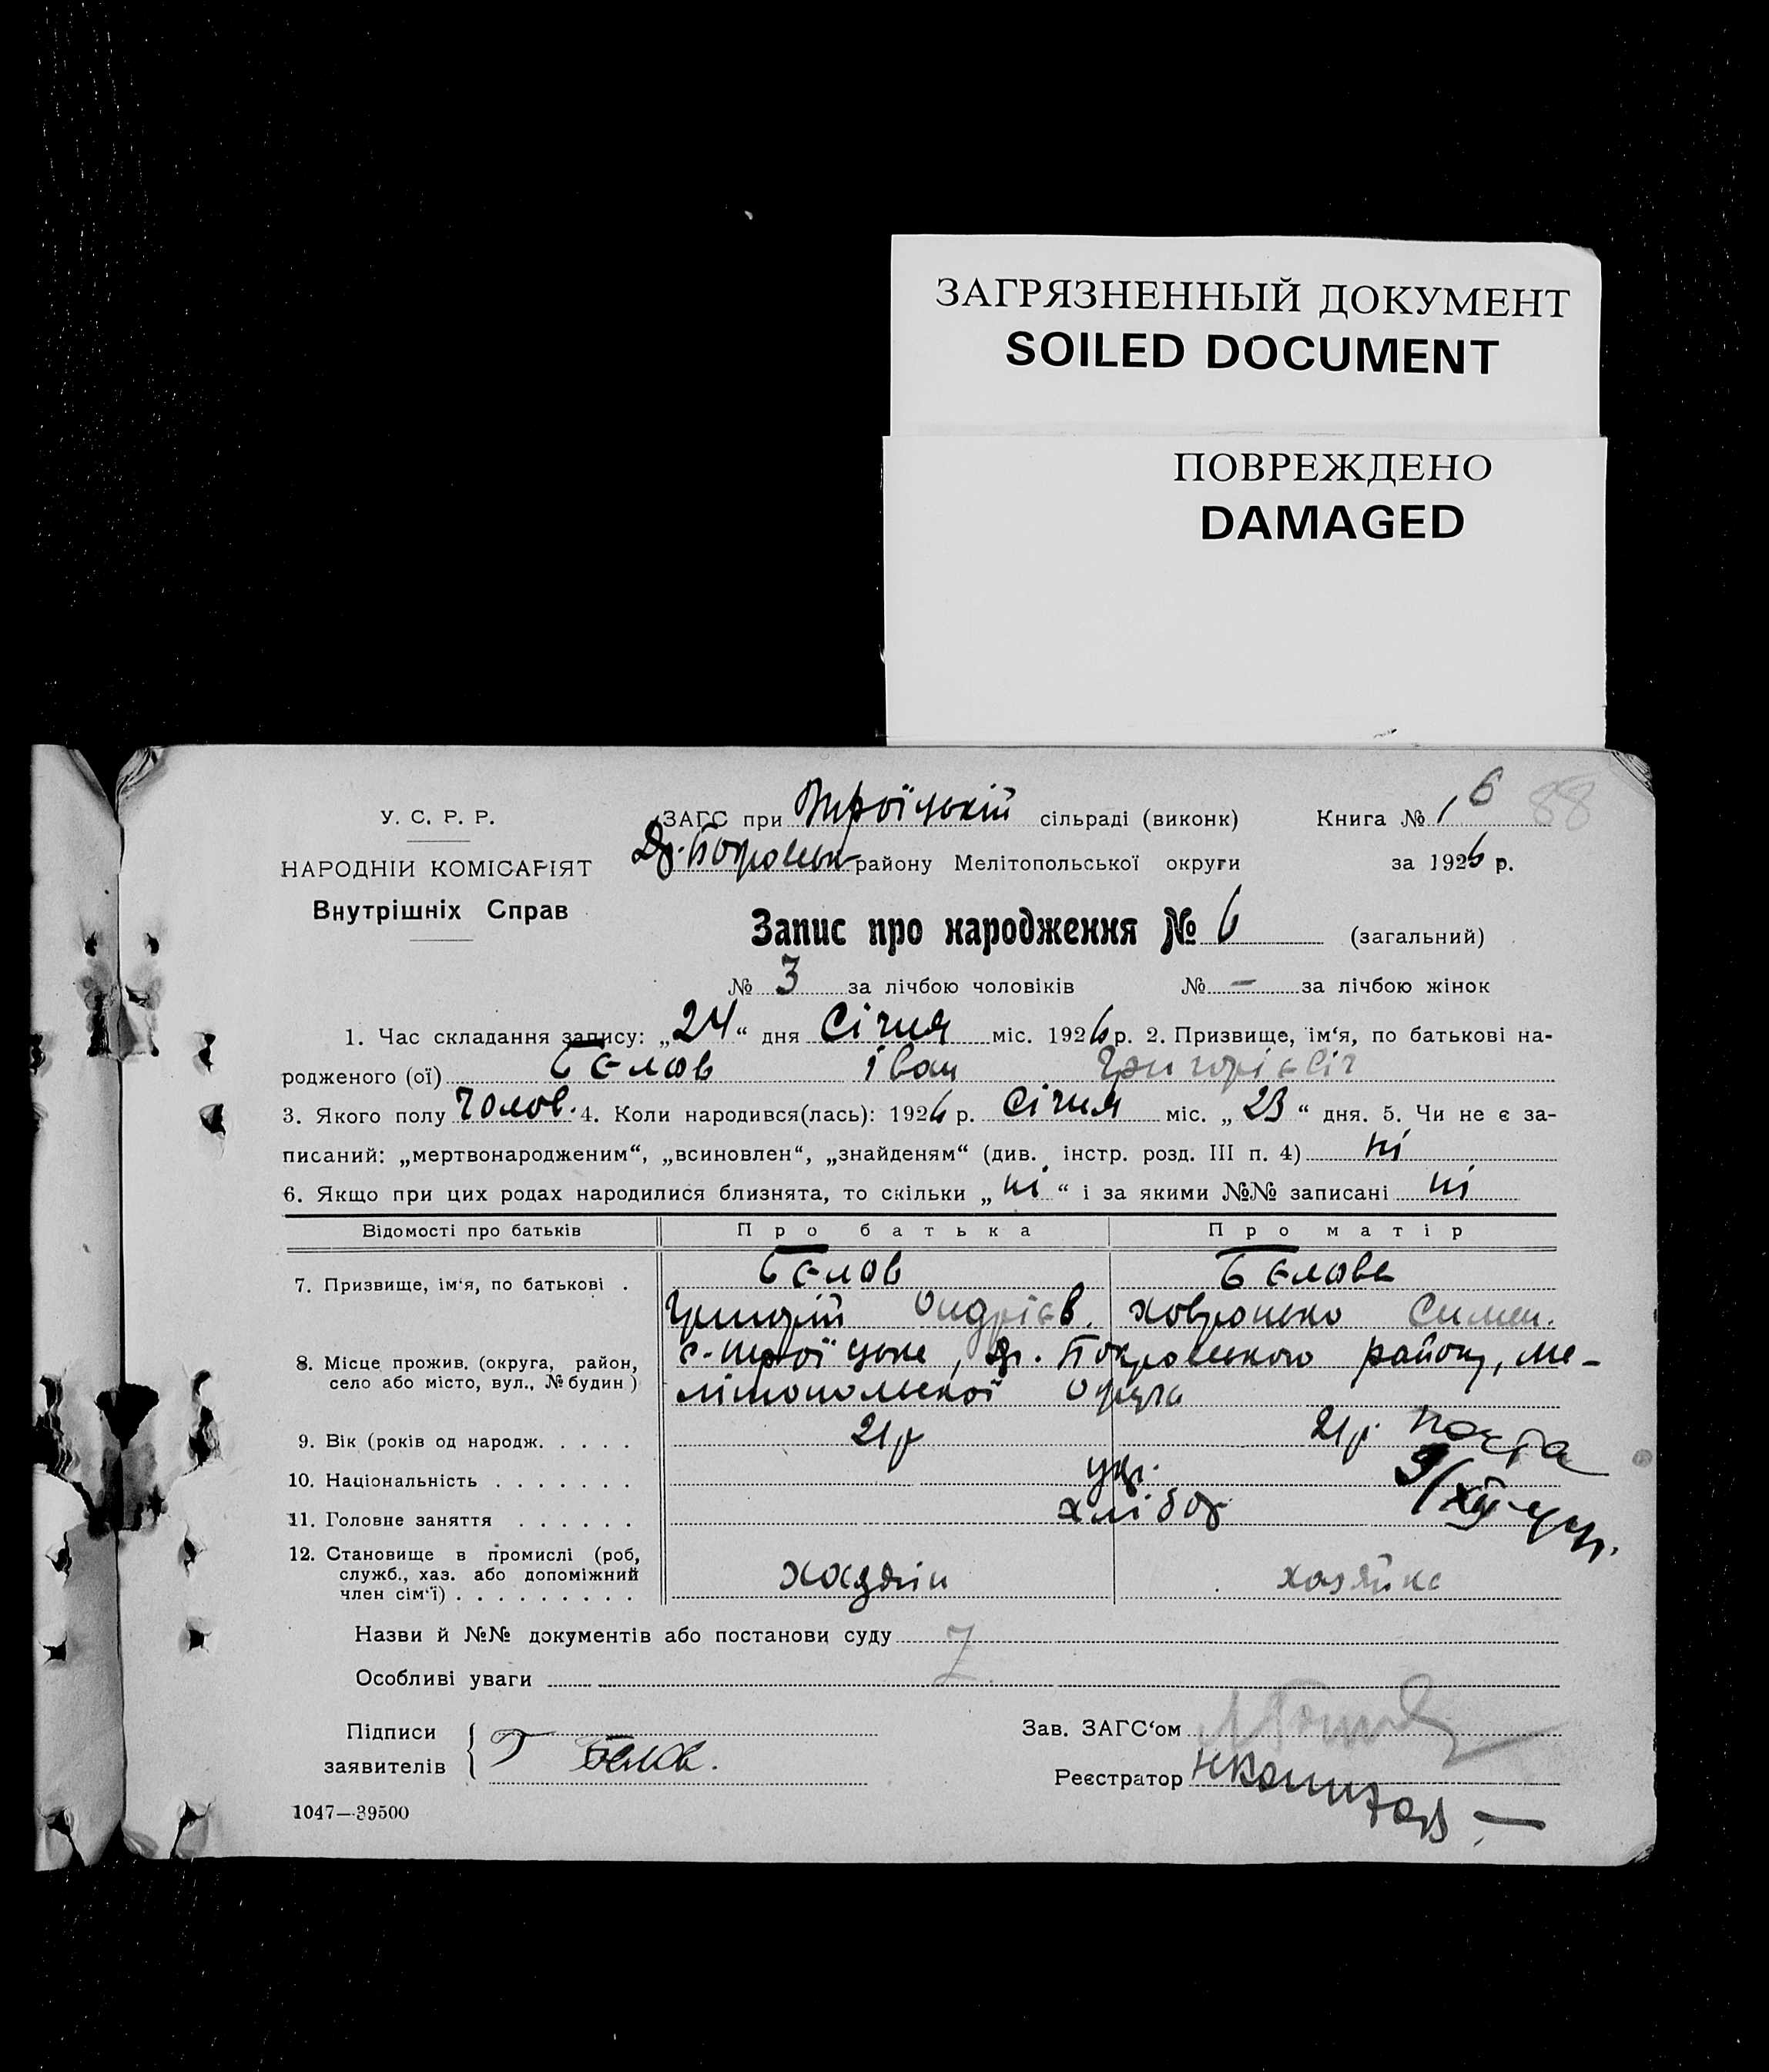 ЗАГРЯЗНЕННЫЙ ДОКУМЕНТ
SOILED DOCUMENT
ПОВРЕЖДЕНО
DAMAGED
У. С. Р. Р.
НАРОДНІЙ КОМІСАРІЯТ
Внутрішніх Справ
ЗАГС при Троїцькій сільраді (виконк) Книга № 1 6 88
району Мелітопольської округи за 1926 р.
Запис про народження № 6 (загальний)
№ 3 за лічбою чоловіків № — за лічбою жінок
1. Час складання запису: „24“ дня Січня міс. 1926 р. 2. Призвище, ім‘я, по батькові на-
родженого (ої) Бєлов Іван Григорієвіч
3. Якого полу Чолов. 4. Коли народився(лась): 1926 р. Січня міс. „23“ дня. 5. Чи не є за-
писаний: „мертвонародженим“, „всиновлен“, „знайденям“ (див. інстр. розд. III п. 4) ні
6. Якщо при цих родах народилися близнята, то скільки „ні“ і за якими №№ записані ні
Відомості про батьків Про батька Про матір
7. Призвище, ім‘я, по батькові . Бєлов Бєлова
Григорій Ондрієв. Ховронько Симен.
8. Місце прожив. (округа, район, с. Троїцьке, Покровського району, Ме-
село або місто, вул., № будин) літопольскої Округа
9. Вік (років од народж. . . . . 21 р 21 р.
10. Національність . . . . . . . укр.
11. Головне заняття . . . . . . хлібор
12. Становище в промислі (роб,
служб., хаз. або допоміжний
член сім‘ї) . . . . . . . . . хазяїн хазяйка
Назви й №№ документів або постанови суду
Особливі уваги
Підписи
заявителів Г Белов.
Зав. ЗАГС‘ом
Реєстратор
1047—39500